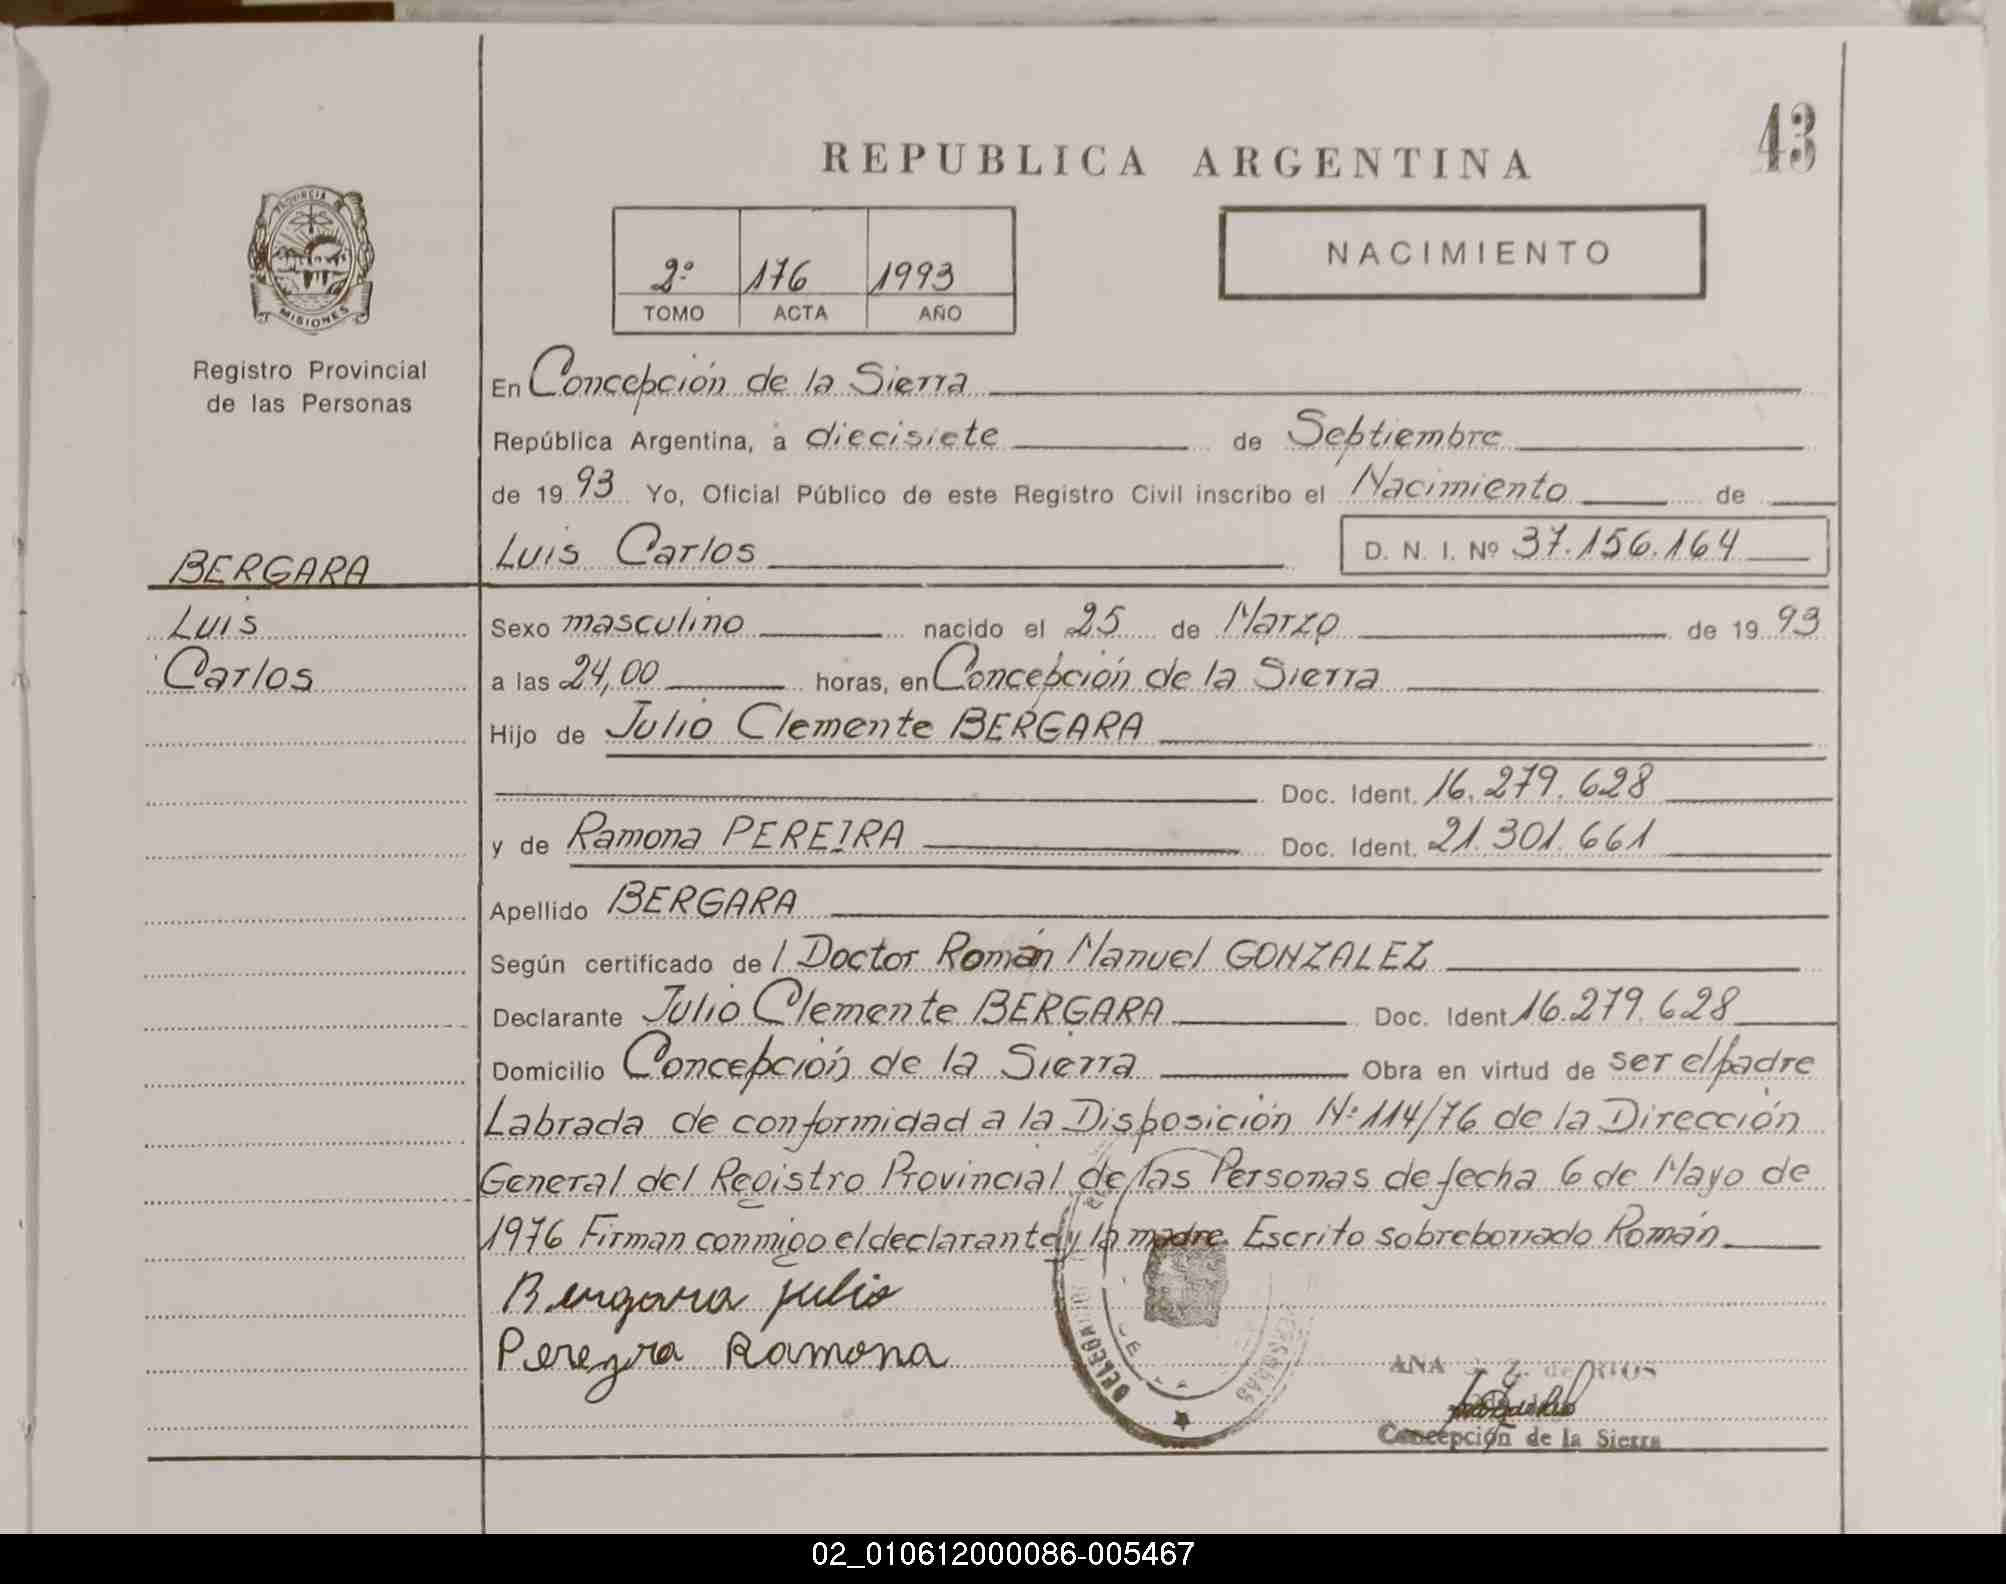 43
REPUBLICA ARGENTINA
PROVINCIA DE
MISIONES
2º 176 1993
TOMO ACTA AÑO
NACIMIENTO
Registro Provincial
de las Personas
En Concepción de la Sierra
República Argentina, a diecisiete de Septiembre
de 19 93 Yo, Oficial Público de este Registro Civil inscribo el Nacimiento de
Luis Carlos D. N. I. Nº 37.156.164
BERGARA
Luis
Carlos
Sexo masculino nacido el 25 de Marzo de 19 93
a las 24,00 horas, en Concepción de la Sierra
Hijo de Julio Clemente BERGARA
Doc. Ident. 16.279.628
y de Ramona PEREIRA Doc. Ident. 21.301.661
Apellido BERGARA
Según certificado de l Doctor Román Manuel GONZALEZ
Declarante Julio Clemente BERGARA Doc. Ident 16.279.628
Domicilio Concepción de la Sierra Obra en virtud de ser el padre
Labrada de conformidad a la Disposición Nº 114/76 de la Dirección
General del Registro Provincial de las Personas de fecha 6 de Mayo de
1976 Firman conmigo el declarante y la madre. Escrito sobreborrado Román
Bergara julio
Pereyra Ramona
DELEGA
ANA de RIOS
Concepción de la Sierra
02_010612000086-005467